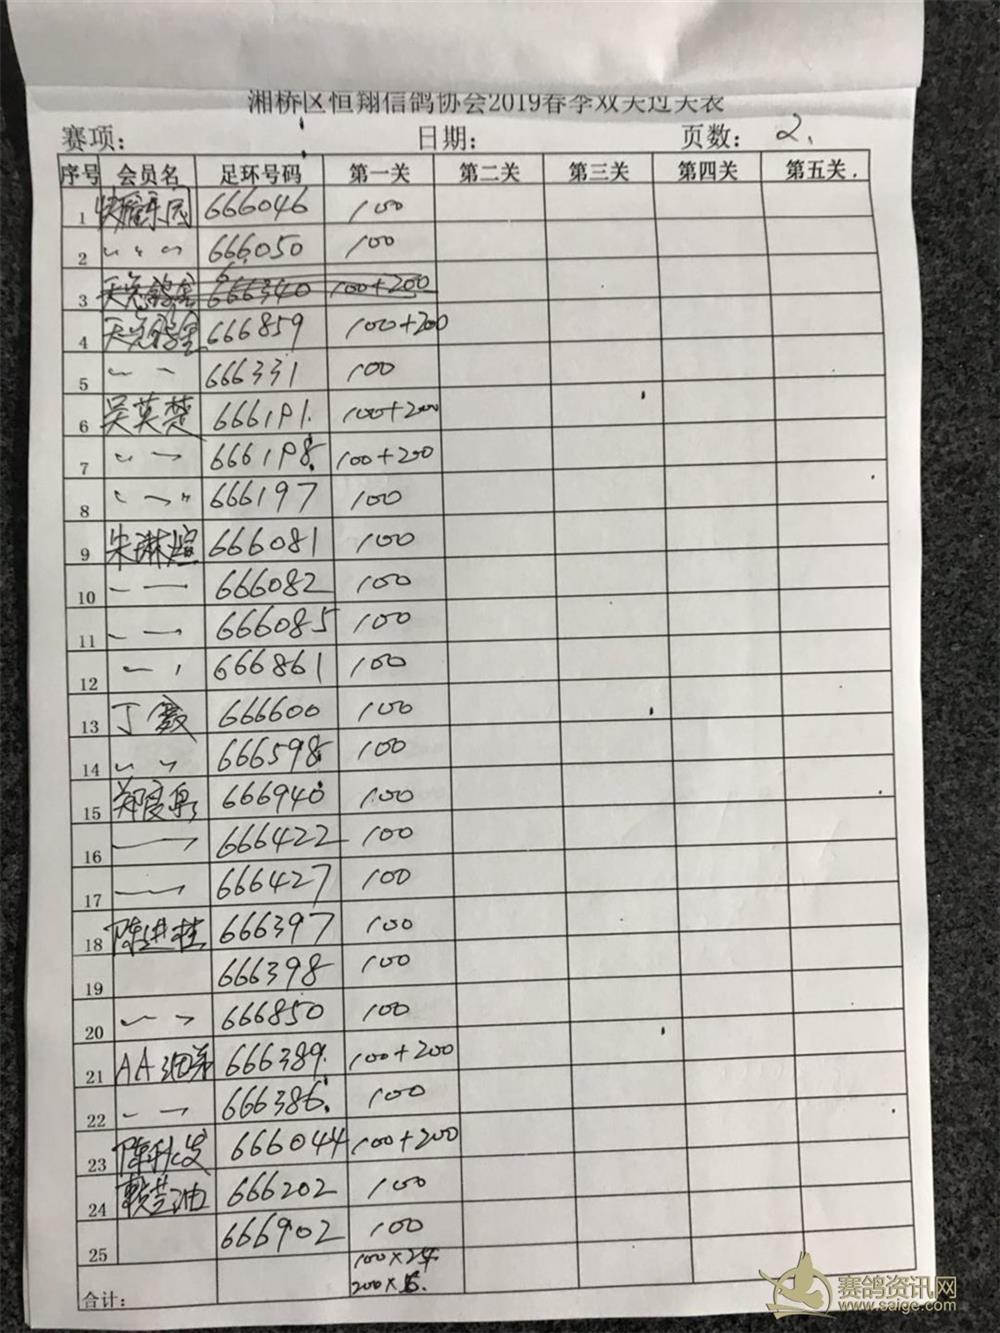 湘桥区恒翔信鸽协会2019春季双关过关表
赛项： 日期： 页数： 2.
序号 会员名 足环号码 第一关 第二关 第三关 第四关 第五关
1 666046 100
2 〃 〃 〃 666050 100
3 天党鸽舍 666340 100+200
4 天党鸽舍 666859 100+200
5 〃 〃 666331 100
6 吴英楚 666191 100+200
7 〃 〃 666198 100+200
8 〃 〃 〃 666197 100
9 朱琳煊 666081 100
10 〃 〃 666082 100
11 〃 〃 666085 100
12 〃 〃 666861 100
13 丁 666600 100
14 〃 〃 666598 100
15 郑 666940 100
16 666422 100
17 666427 100
18 陈进桂 666397 100
19 666398 100
20 〃 〃 666850 100
21 AA细弟 666389 100+200
22 〃 〃 666386 100
23 陈秋发 666044 100+200
24 666202 100
25 666902 100
合计： 100×24
200×5.
赛鸽资讯网
www.saige.com